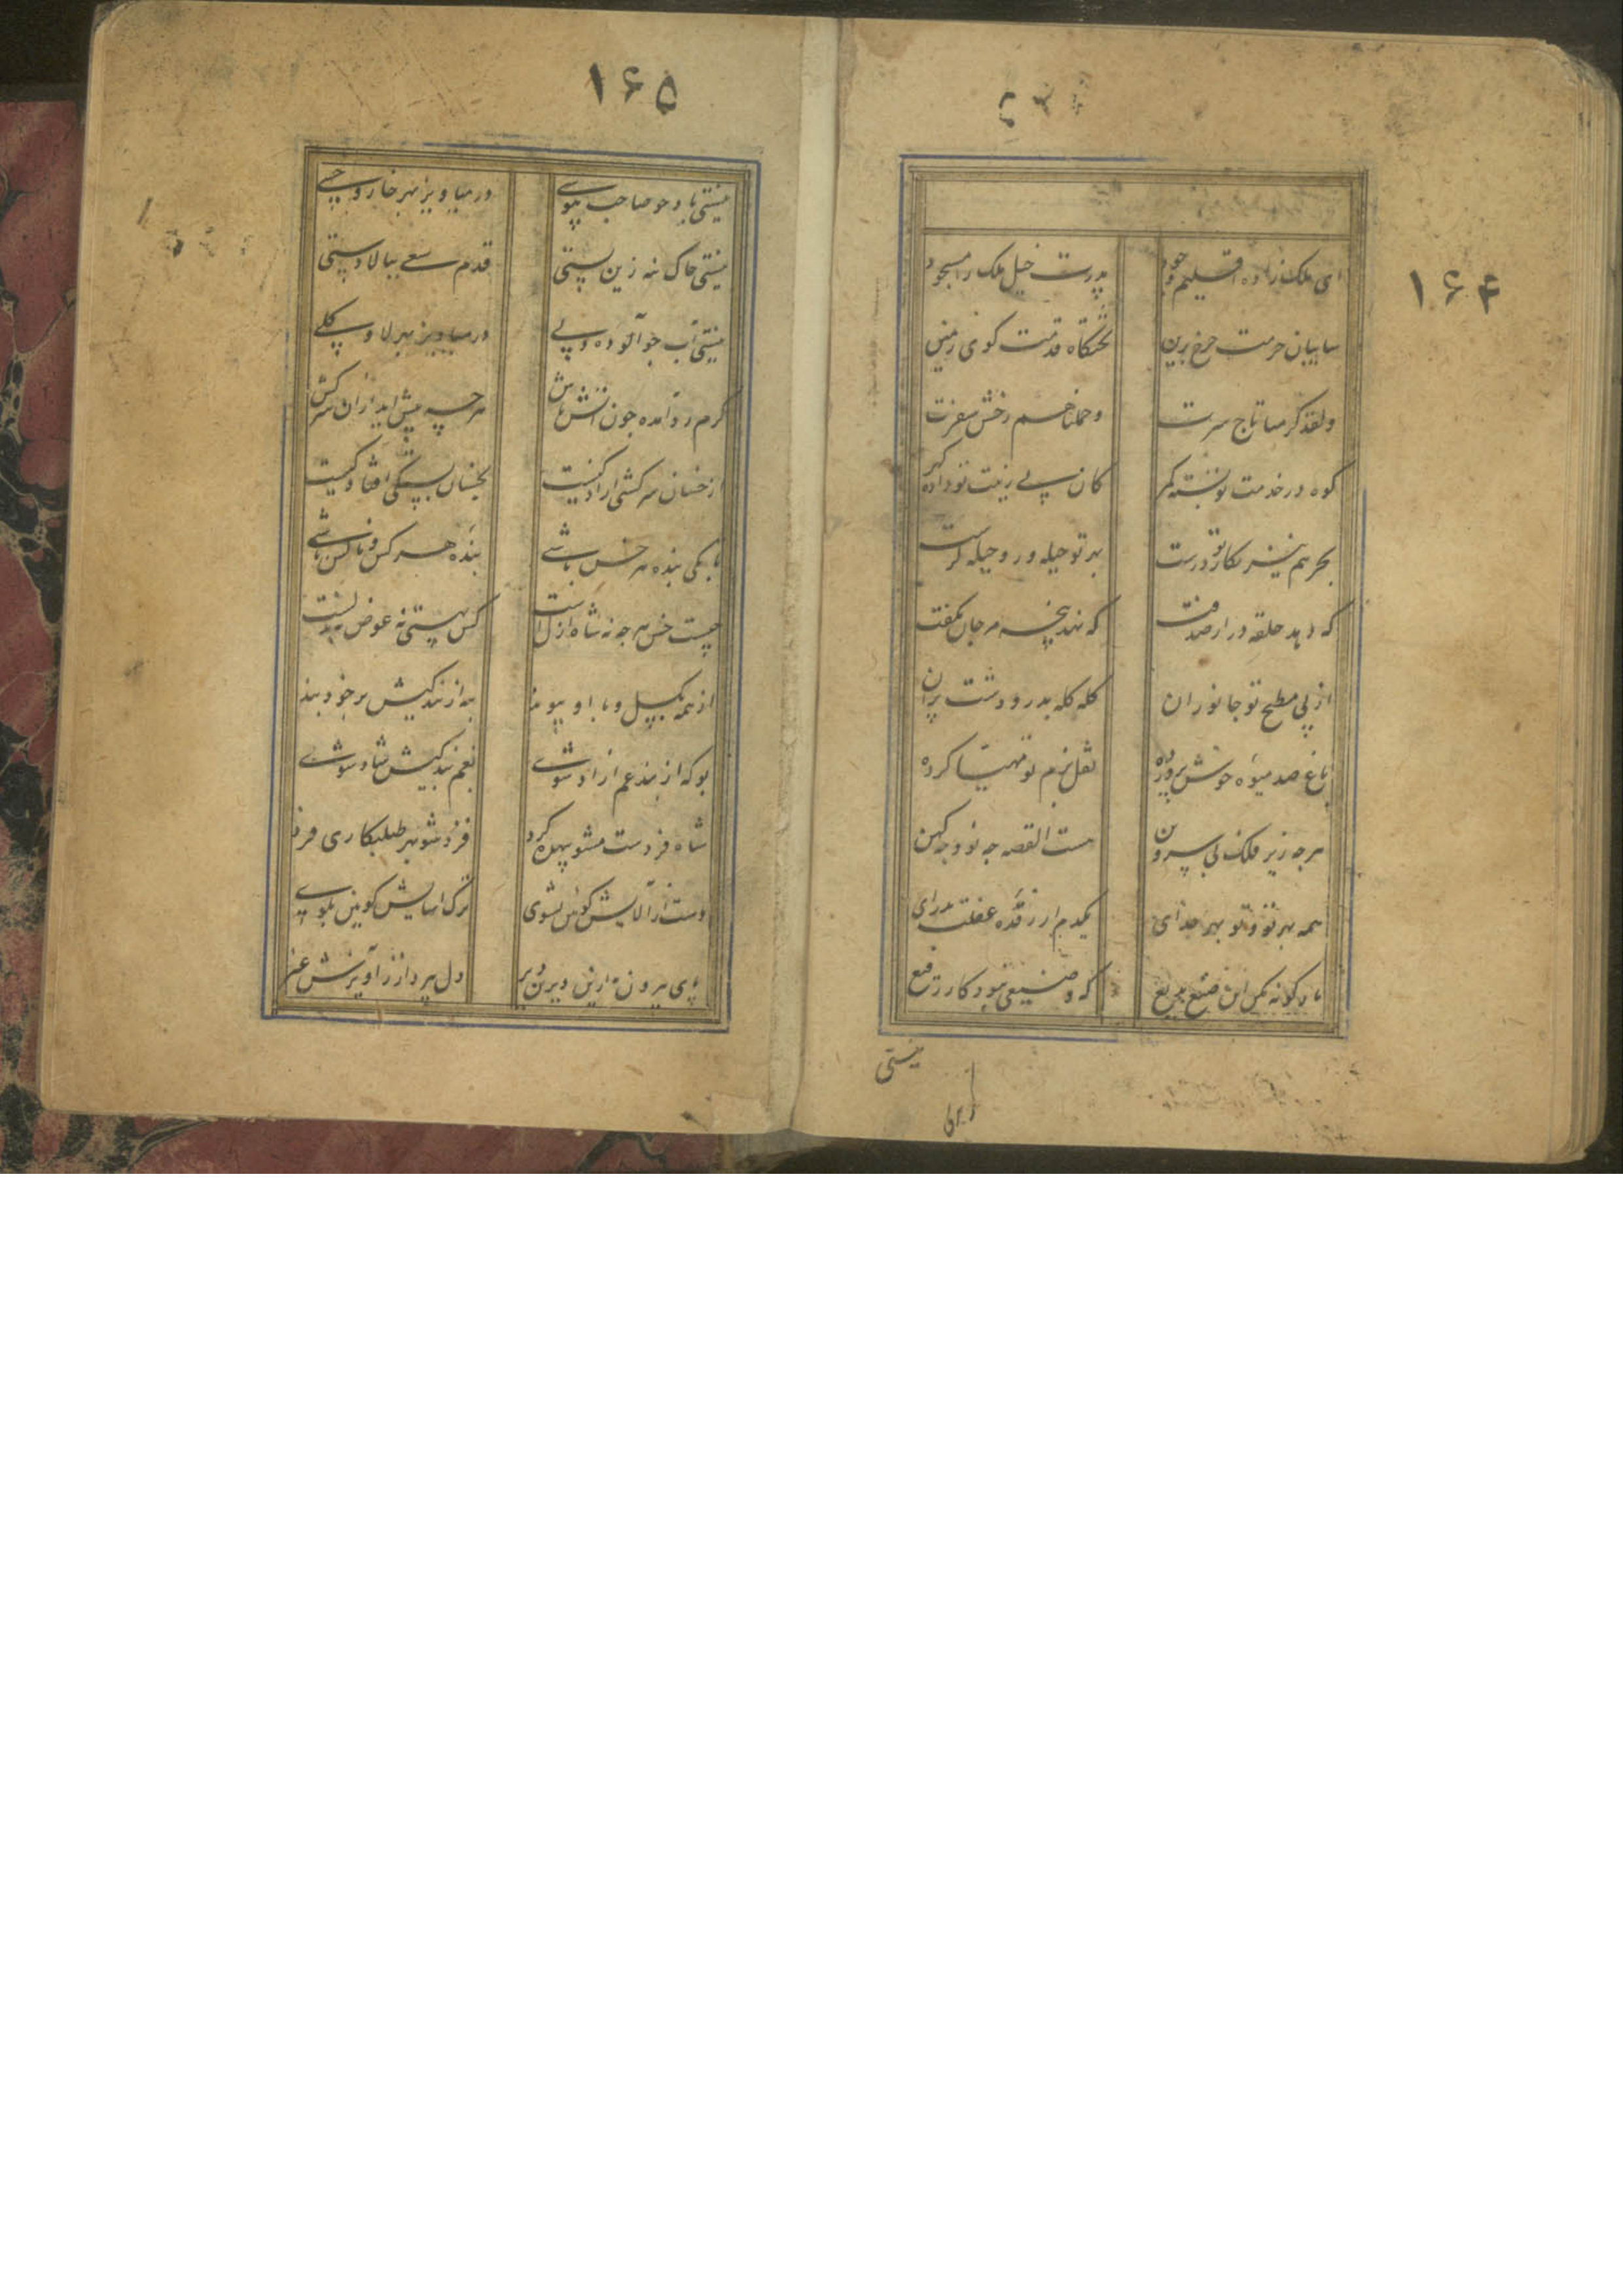 ۱۶۴
ای ملک زاده اقلیم وجود پدرت خیل ملک را مسجود
سایبان حرمت چرخ برین تختگاه قدمت کوی زمین
ولقد کرمنا تاج سرت وحملناهم رخش سفرت
کوه در خدمت تو بسته کمر کان پی زینت تو داده کهر
بحر هم نیز بکار تو درست بهر تو حیله ور و حیله کرست
که دهد حلقه در از صدفت که نهد پنجه مرجان بکفت
از پی مطبخ تو جانوران کله کله بدر و دشت بران
باغ صد میوه خوش پرورده نقل بزم تو مهیا کرده
هرچه زیر فلک بی سر و بن هست القصه چه نو و چه کهن
همه بهر تو و تو بهر خدای یکدم از رقده غفلت بدرای
باد کونه مکن این صنع بدیع که وضیعی نبود کار رفیع
نیستی
۱۶۵
نیستی باد چو صاحب هوسی در میاویز بهر خار و خسی
نیستی خاک نه زین پستی قدم سعی ببالادستی
نیستی آب چو آلوده دلی در میاویز بهر لا و کلی
کرم رو آمده چون آتش باش هرچه پیش آید ازان سرکش باش
از خسان سرکشی ازادکیست بخسان بستکی افتادکیست
تا بکی بنده هر خس باشی بنده هر کس و ناکس باشی
چیست خس هرچه نه شاه ازلست کس هستی نه عوض نه بدلست
از همه بکسل و با او پیوند به از بندکیش بر خود بند
بو که از بند غم ازاد شوی بغم بندکیش شاد شوی
شاه فردست مشو بیهده کرد فرد شو بهر طلبکاری فرد
دست از آلایش کونین بشوی ترک اسایش کونین بکوی
پای بیرون نه ازین دیرین دیر دل بپرداز ز آویزش غیر